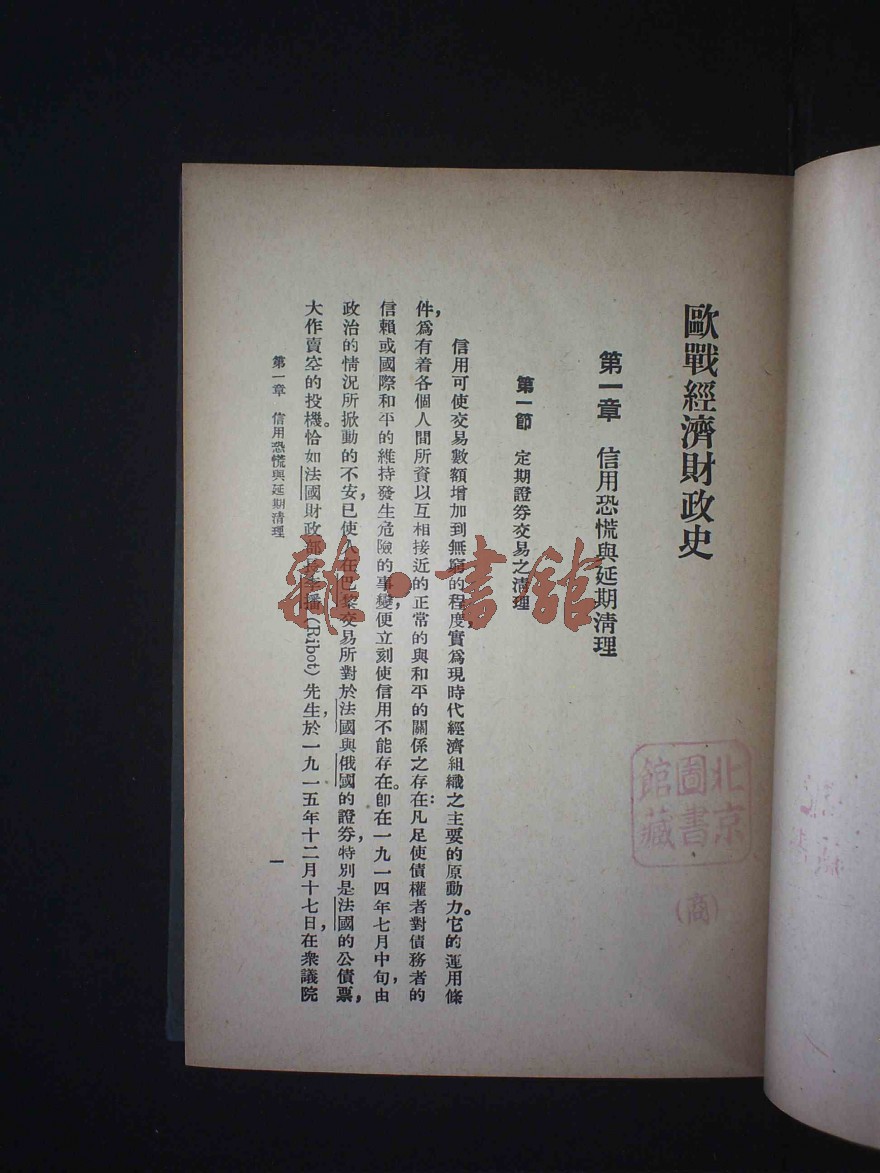 歐戰經濟財政史
第一章 信用恐慌與延期清理
第一節 定期證券交易之清理
信用可使交易數額增加到無窮的程度,實爲現時代經濟組織之主要的原動力。它的運用條
件,爲有着各個人間所資以互相接近的正常的與和平的關係之存在:凡足使債權者對債務者的
信賴或國際和平的維持發生危險的事變,便立刻使信用不能存在。卽在一九一四年七月中旬,由
政治的情況所掀動的不安,已使人在巴黎交易所對於法國與俄國的證券,特別是法國的公債票,
大作賣空的投機。恰如法國財政部長李播(Ribot)先生於一九一五年十二月十七日,在衆議院
第一章 信用恐慌與延期清理
一
北京
圖書
館藏
(商)
雜·書舘